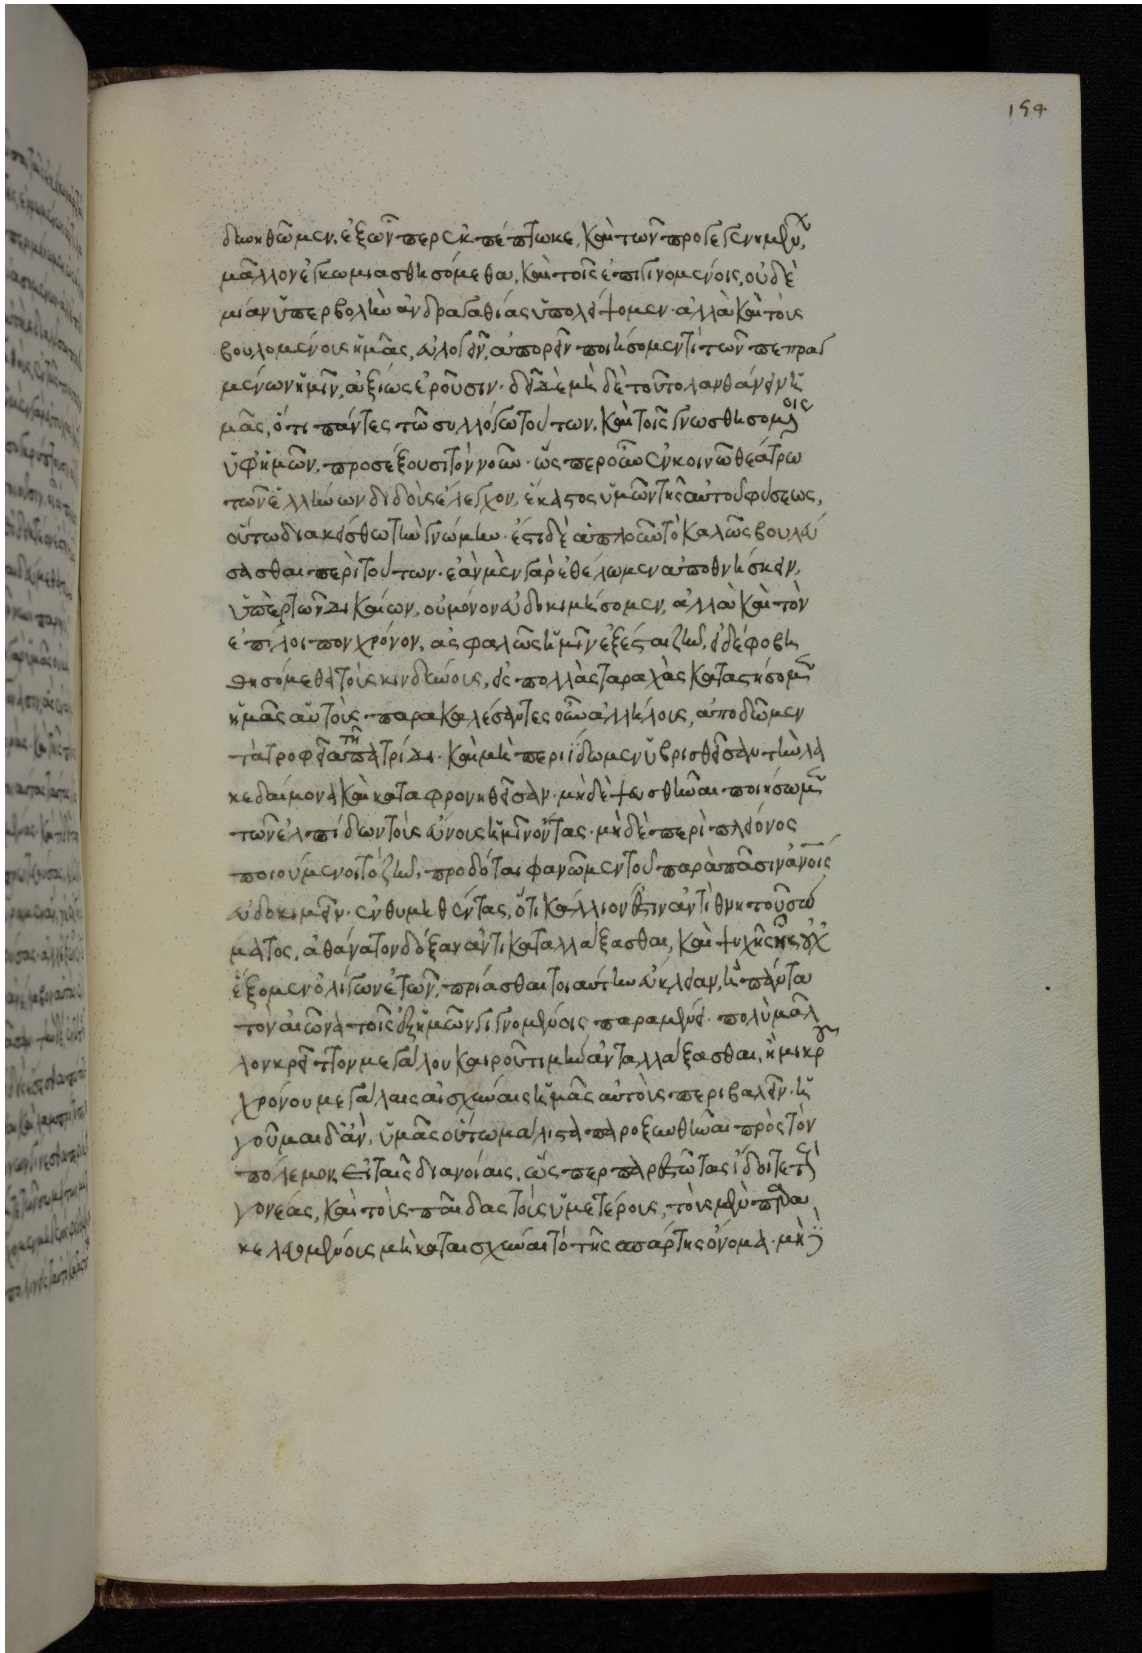 154
δυνηθῶμεν. ἐξ ὧν περ ἐκπέπτωκε, καὶ τῶν προγεγενημένων,
μᾶλλον ἐγκωμιασθησόμεθα, καὶ τοῖς ἐπιγινομένοις, οὐδε
μίαν ὑπερβολὴν ἀνδραγαθίας ὑπολείψομεν· ἀλλὰ καὶ τοὺς
βουλομένους ἡμᾶς, εὐλογεῖν, ἀπορεῖν ποιήσομεν τί τῶν πεπραγ
μένων ἡμῖν, ἀξίως ἐροῦσιν· δεῖ δὲ μὴ δὲ τοῦτο λανθάνειν ὑ
μᾶς, ὅτι πάντες τῶ συλλόγω τούτων, καὶ τοῖς γνωσθησομένοις
ὑφ' ἡμῶν, προσέξουσι τὸν νοῦν· ὥς περ οὖν ἐν κοινῶ θεάτρω
τῶν ἑλλήνων διδοὺς ἔλεγχον, ἕκαστος ὑμῶν τῆς αὑτοῦ φύσεως,
οὕτω διακείσθω τὴν γνώμην· ἔστι δὲ ἁπλοῦν τὸ καλῶς βουλεύ
σασθαι περὶ τούτων· ἐὰν μὲν γὰρ ἐθέλωμεν ἀποθνήσκειν,
ὑπὲρ τῶν δικαίων, οὐ μόνον εὐδοκιμήσομεν, ἀλλὰ καὶ τὸν
ἐπίλοιπον χρόνον, ἀσφαλῶς ἡμῖν ἐξέσται ζῆν, εἰ δὲ φοβη
θησόμεθα τοὺς κινδύνους, εἰς πολλὰς ταραχὰς καταστήσομεν
ἡμᾶς αὐτοὺς· παρακαλέσαντες οὖν ἀλλήλους, ἀποδῶμεν
τὰ τροφεῖα τῆ πατρίδι· καὶ μὴ περιίδωμεν ὑβρισθεῖσαν τὴν λα
κεδαίμονα καὶ καταφρονηθεῖσαν· μηδὲ ψευσθῆναι ποιήσωμεν
τῶν ἐλπίδων τοὺς εὔνους ἡμῖν ὄντας· μηδὲ περὶ πλείονος
ποιούμενοι τὸ ζῆν, προδόται φανῶμεν τοῦ παρὰ πᾶσιν ἀνοις
εὐδοκιμεῖν· ἐνθυμηθέντας, ὅτι κάλλιόν ἐστιν ἀντὶ θνητοῦ σώ
ματος, ἀθάνατον δόξαν ἀντικαταλλάξασθαι, καὶ ψυχῆς ἧς οὐχ
ἕξομεν ὀλίγων ἐτῶν, πρίασθαι τοιαύτην εὔκλειαν, ἣ πάντα
τὸν αἰῶνα τοῖς ἐξ ἡμῶν γιγνομένοις παραμενεῖ· πολὺ μᾶλ
λον κρεῖττον μεγάλου καιροῦ τιμὴν ἀνταλλάξασθαι, ἢ μικροῦ
χρόνου μεγάλαις αἰσχύναις ἡμᾶς αὐτοὺς περιβαλεῖν· ἡ
γοῦμαι δ' ἂν, ὑμᾶς οὕτω μάλιστα παροξυνθῆναι πρὸς τὸν
πόλεμον, εἰ ταῖς διανοίαις, ὥς περ παρεστῶτας ἴδοιτε τοὺς
γονέας, καὶ τοὺς παῖδας τοὺς ὑμετέρους, τοὺς μὲν παρα
κελευομένους μὴ καταισχῦναι τὸ τῆς σπάρτης ὄνομα· μὴ